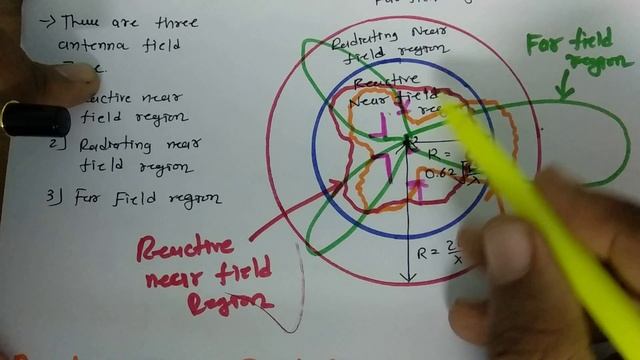 -> There are three
antenna field
1) Reactive near
field region
2] Radiating near
field region
3) Far Field region
Radiating Near
field region
Reactive
Near field
region
R =
0.62
R = 2
λ
Far field
region
Reactive
near field
Region